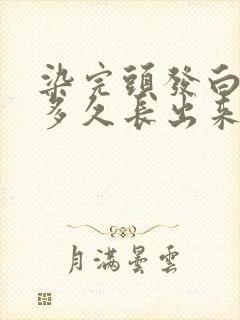 染完頭發白
多久長出來
月滿曇雲